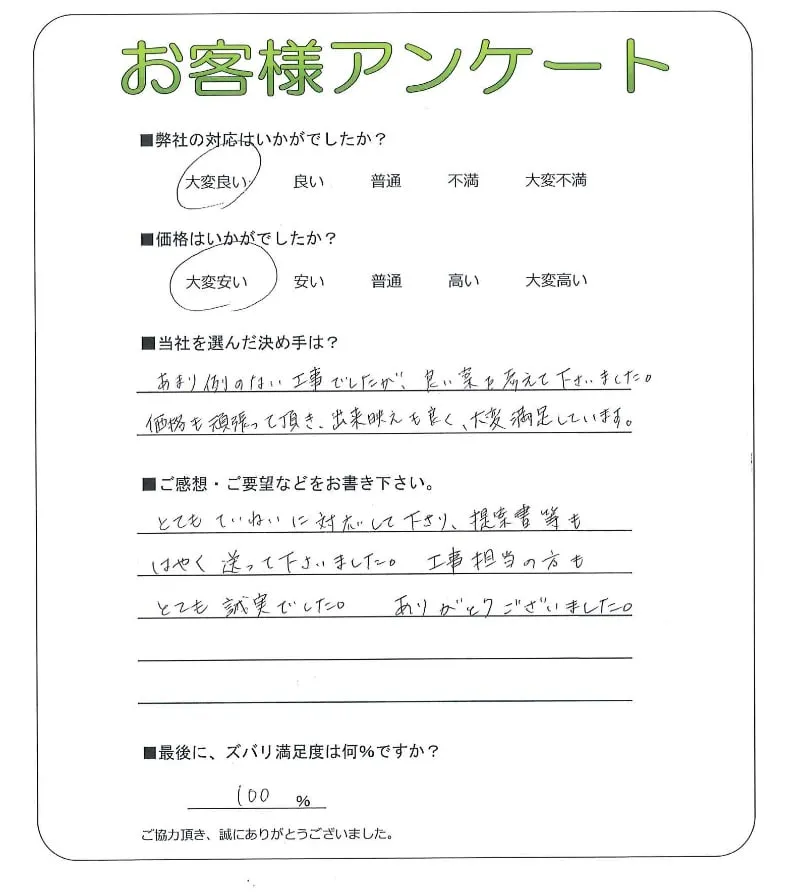 お客様アンケート
■弊社の対応はいかがでしたか？
大変良い 良い 普通 不満 大変不満
■価格はいかがでしたか？
大変安い 安い 普通 高い 大変高い
■当社を選んだ決め手は？
あまり例のない工事でしたが、良い案を考えて下さいました。
価格も頑張って頂き、出来映えも良く、大変満足しています。
■ご感想・ご要望などをお書き下さい。
とてもていねいに対応して下さり、提案書等も
はやく送って下さいました。 工事担当の方も
とても誠実でした。 ありがとうございました。
■最後に、ズバリ満足度は何%ですか？
100 %
ご協力頂き、誠にありがとうございました。